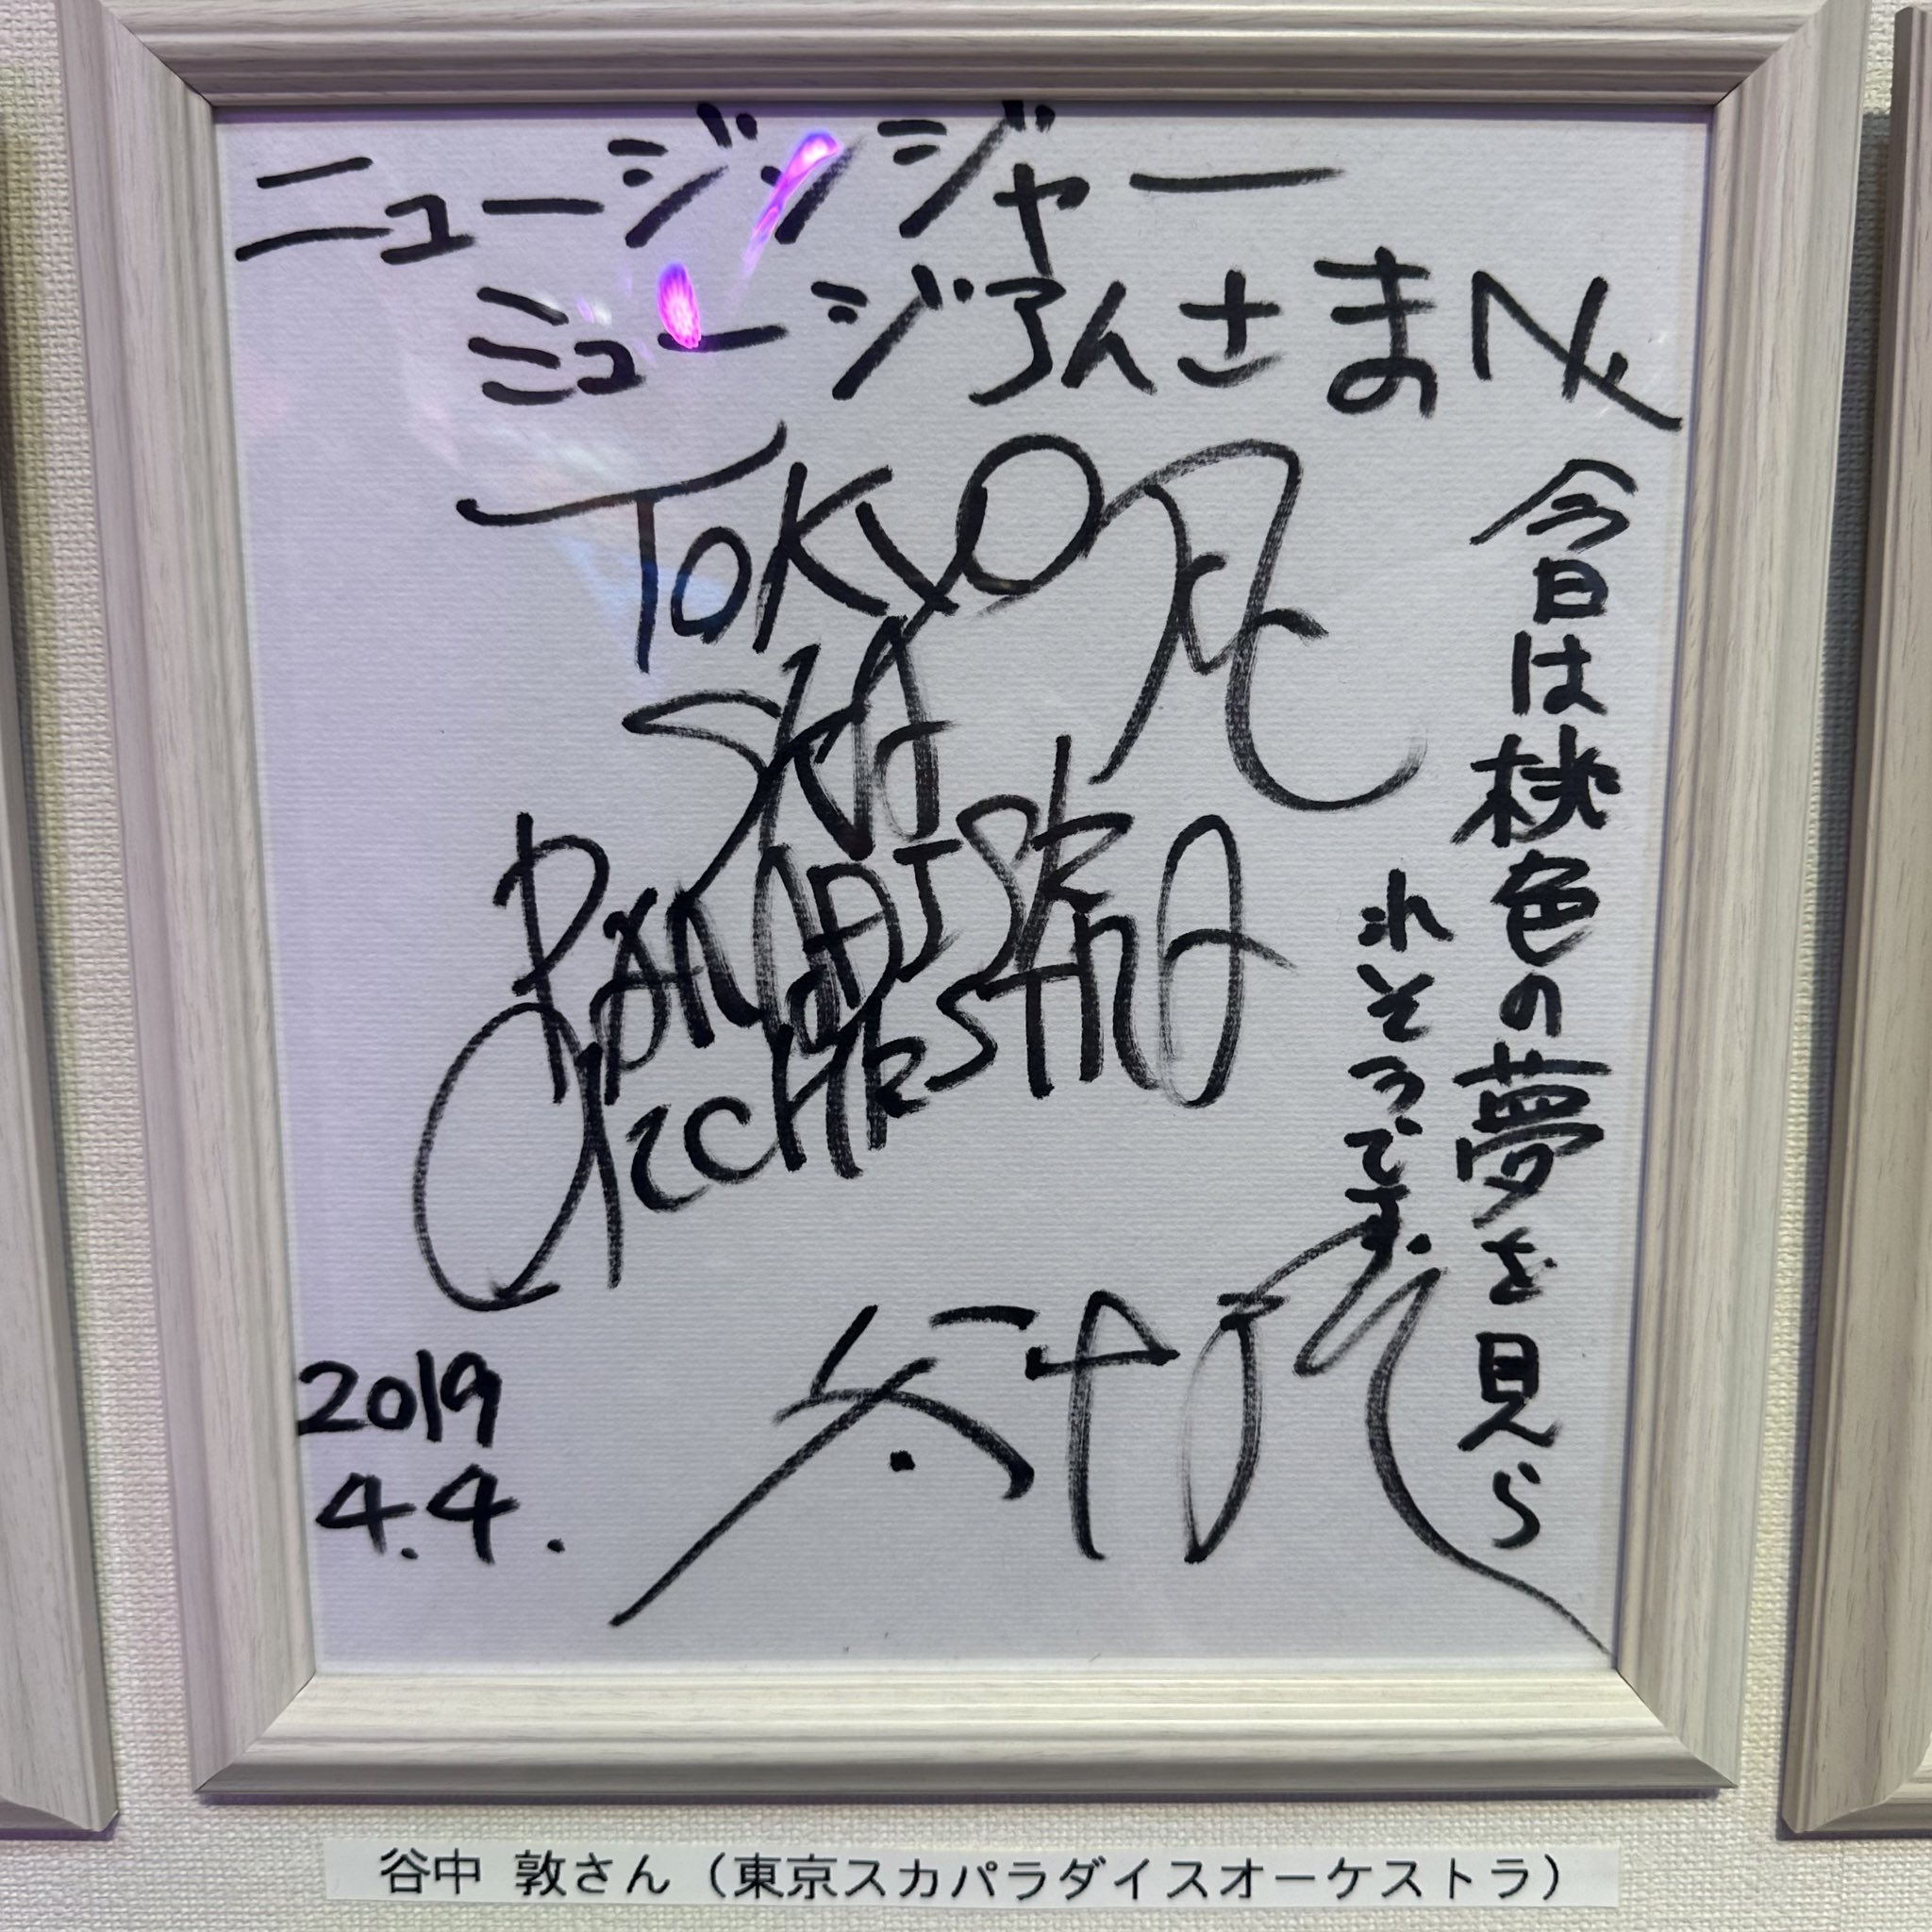 ニュージンジャー
ミュージアムさまへ
今日は桃色の夢を見ら
れそうです。
TOKYO
SKA
PARADISE
ORCHESTRA
谷中
2019
4.4.
谷中 敦さん（東京スカパラダイスオーケストラ）